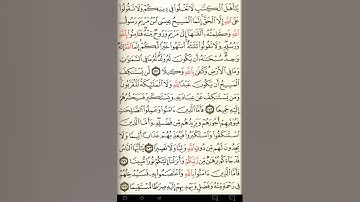 يَـٰٓأَهْلَ ٱلْكِتَـٰبِ لَا تَغْلُوا۟ فِى دِينِكُمْ وَلَا تَقُولُوا۟
عَلَى ٱللَّهِ إِلَّا ٱلْحَقَّ ۚ إِنَّمَا ٱلْمَسِيحُ عِيسَى ٱبْنُ مَرْيَمَ رَسُولُ
ٱللَّهِ وَكَلِمَتُهُۥٓ أَلْقَىٰهَآ إِلَىٰ مَرْيَمَ وَرُوحٌ مِّنْهُ ۖ فَـَٔامِنُوا۟ بِٱللَّهِ
وَرُسُلِهِۦ ۖ وَلَا تَقُولُوا۟ ثَلَـٰثَةٌ ۚ ٱنتَهُوا۟ خَيْرًا لَّكُمْ ۚ إِنَّمَا ٱللَّهُ إِلَـٰهٌ
وَٰحِدٌ ۖ سُبْحَـٰنَهُۥٓ أَن يَكُونَ لَهُۥ وَلَدٌ ۘ لَّهُۥ مَا فِى ٱلسَّمَـٰوَٰتِ
وَمَا فِى ٱلْأَرْضِ ۗ وَكَفَىٰ بِٱللَّهِ وَكِيلًا ١٧١ لَّن يَسْتَنكِفَ
ٱلْمَسِيحُ أَن يَكُونَ عَبْدًا لِّلَّهِ وَلَا ٱلْمَلَـٰٓئِكَةُ ٱلْمُقَرَّبُونَ ۚ
وَمَن يَسْتَنكِفْ عَنْ عِبَادَتِهِۦ وَيَسْتَكْبِرْ فَسَيَحْشُرُهُمْ
إِلَيْهِ جَمِيعًا ١٧٢ فَأَمَّا ٱلَّذِينَ ءَامَنُوا۟ وَعَمِلُوا۟ ٱلصَّـٰلِحَـٰتِ
فَيُوَفِّيهِمْ أُجُورَهُمْ وَيَزِيدُهُم مِّن فَضْلِهِۦ ۖ وَأَمَّا ٱلَّذِينَ
ٱسْتَنكَفُوا۟ وَٱسْتَكْبَرُوا۟ فَيُعَذِّبُهُمْ عَذَابًا أَلِيمًا وَلَا
يَجِدُونَ لَهُم مِّن دُونِ ٱللَّهِ وَلِيًّا وَلَا نَصِيرًا ١٧٣ يَـٰٓأَيُّهَا ٱلنَّاسُ
قَدْ جَآءَكُم بُرْهَـٰنٌ مِّن رَّبِّكُمْ وَأَنزَلْنَآ إِلَيْكُمْ نُورًا مُّبِينًا
١٧٤ فَأَمَّا ٱلَّذِينَ ءَامَنُوا۟ بِٱللَّهِ وَٱعْتَصَمُوا۟ بِهِۦ فَسَيُدْخِلُهُمْ
فِى رَحْمَةٍ مِّنْهُ وَفَضْلٍ وَيَهْدِيهِمْ إِلَيْهِ صِرَٰطًا مُّسْتَقِيمًا ١٧٥